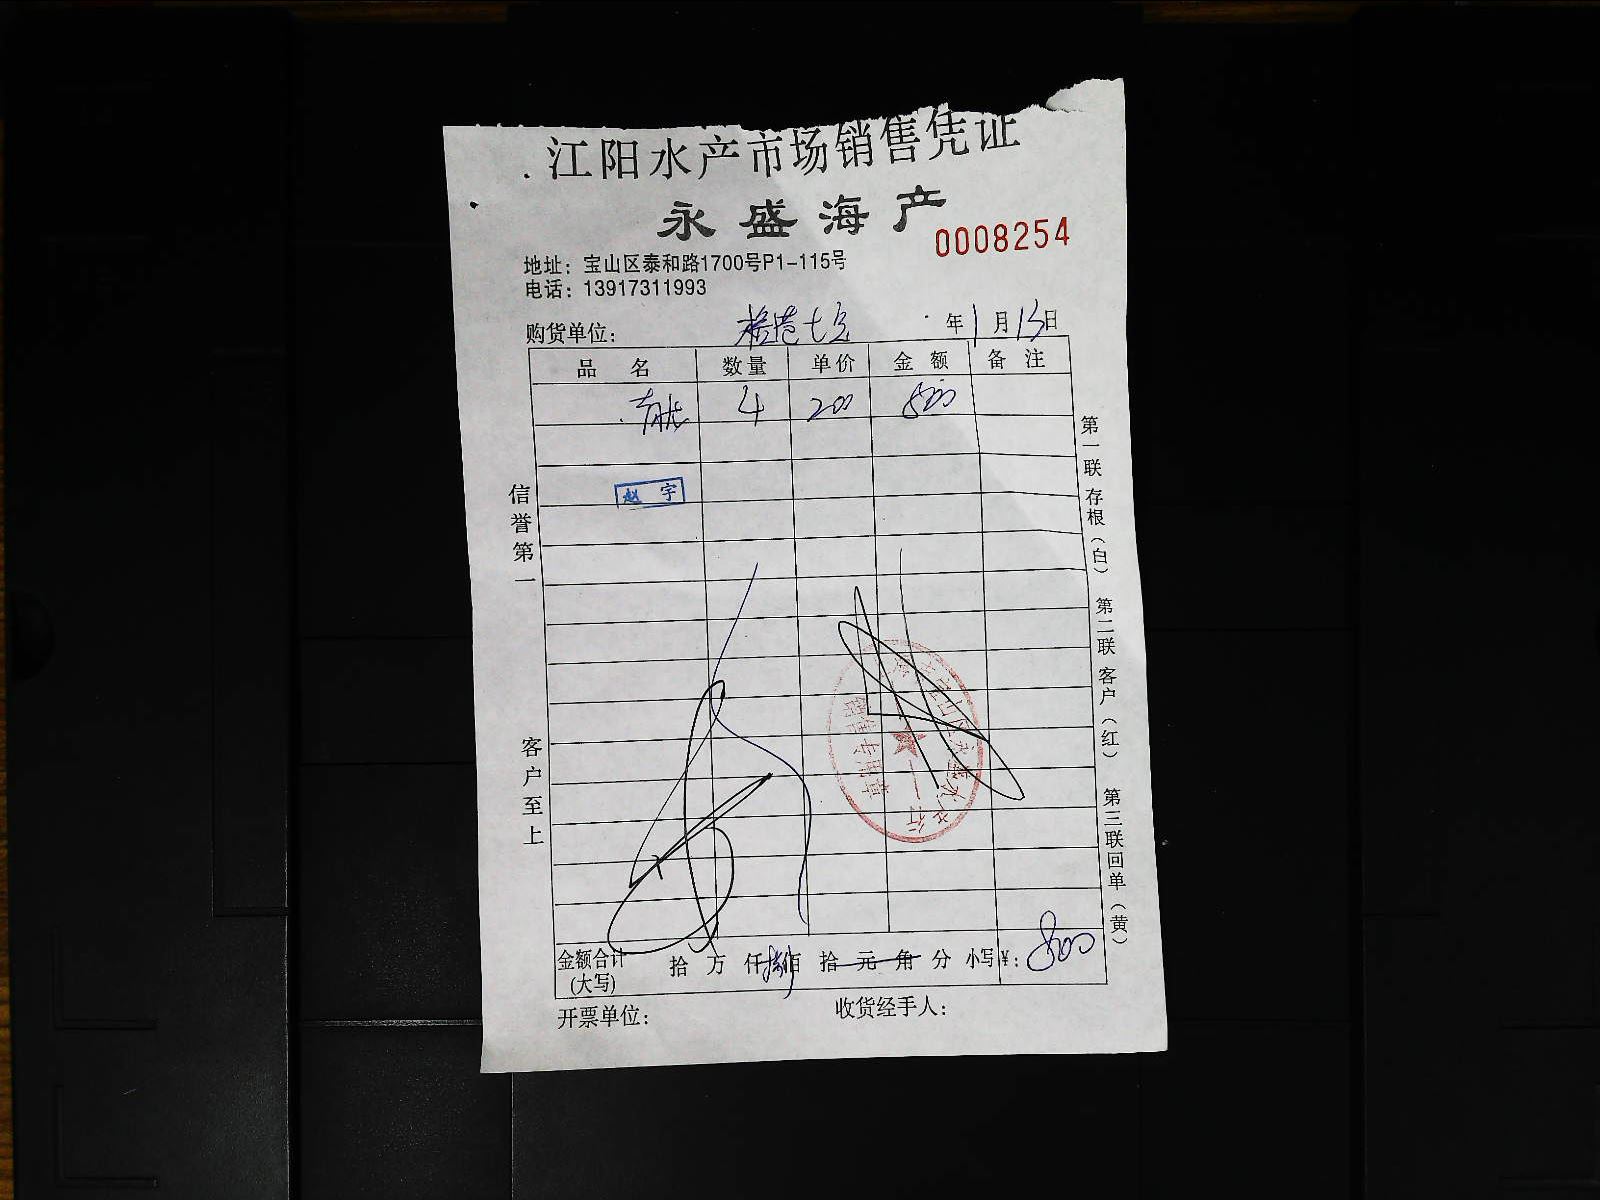 江阳水产市场销售凭证
永盛海产
0008254
地址：宝山区泰和路1700号P1-115号
电话：13917311993
购货单位： 年1月13日
品名 数量 单价 金额 备注
青龙 4 200 800
赵宇
信誉第一
客户至上
第一联存根（白） 第二联客户（红） 第三联回单（黄）
销售专用章
金额合计（大写） 拾 万 仟捌佰 拾 元 角 分 小写¥：800
开票单位： 收货经手人：